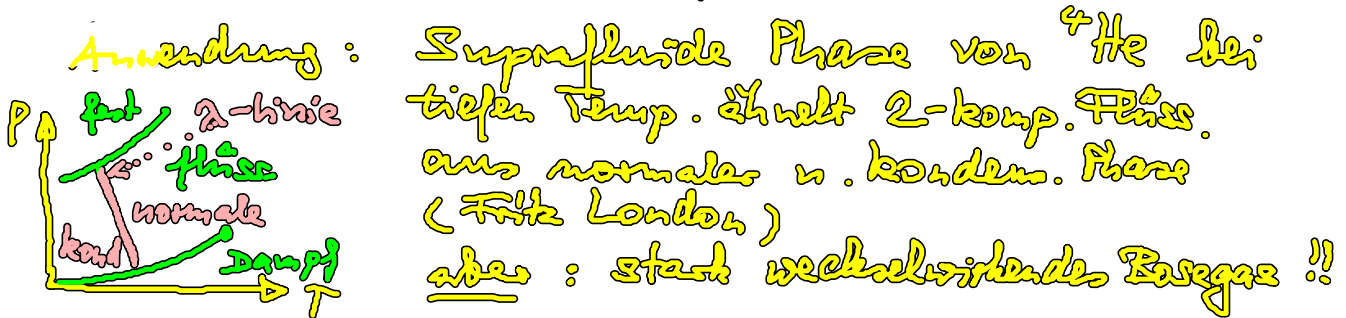 Anwendung : Suprafluide Phase von ⁴He bei
tiefen Temp. ähnelt 2-komp. Flüss.
aus normaler u. kondens. Phase
(Fritz London)
aber : stark wechselwirkendes Bosegas !!
P
fest
λ-Linie
flüss
normale
kond
Dampf
T